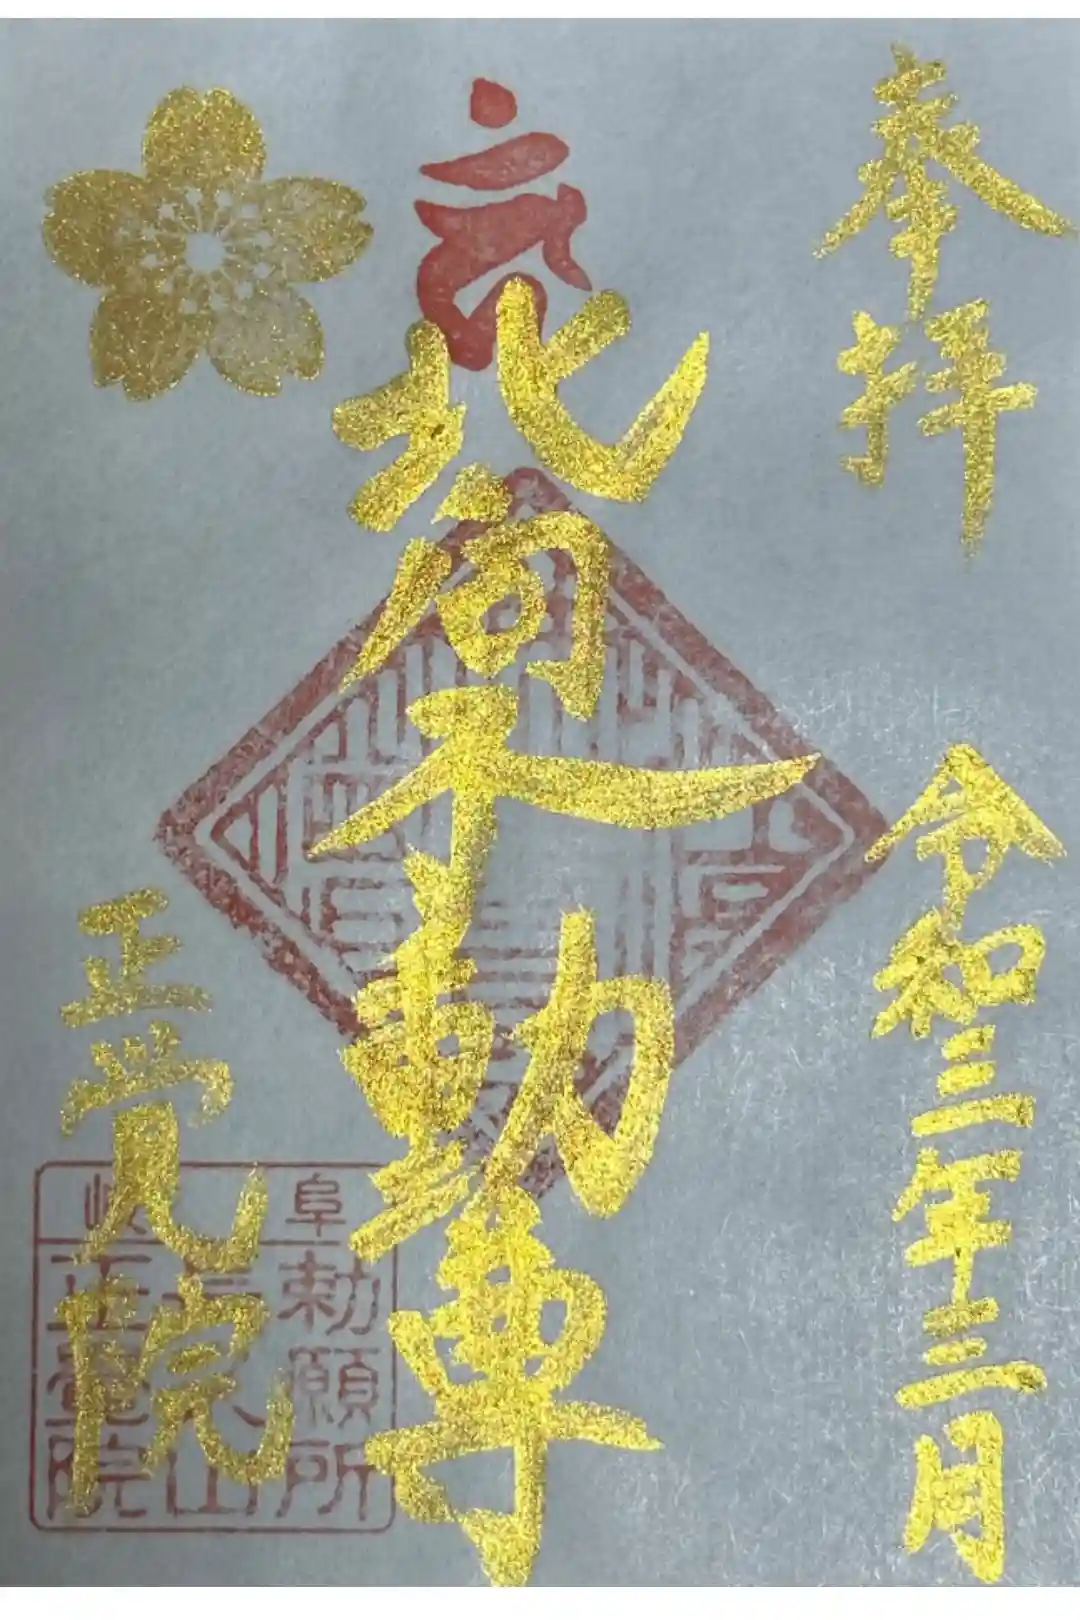 奉拝
令和三年三月
北向不動尊
正覚院
岐阜
勅願所
山
正覚院